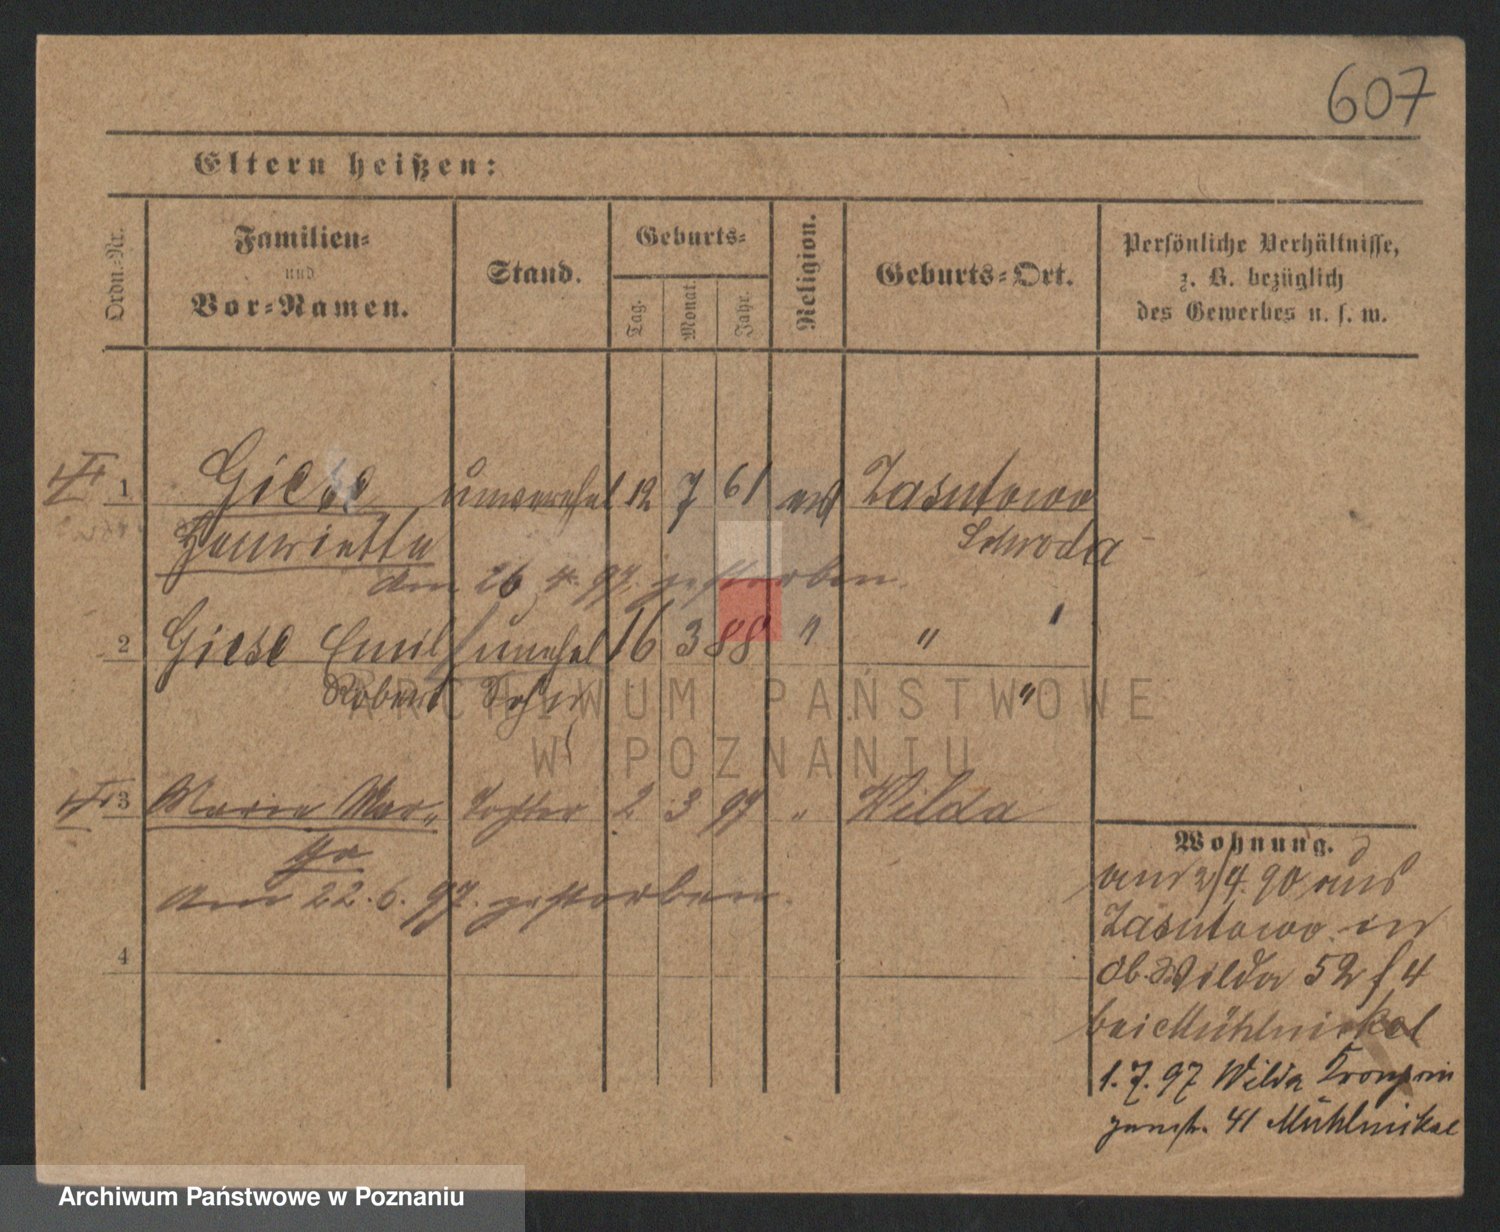 607
Eltern heißen:
Ordn.-Nr.
Familien-
und
Vor-Namen.
Stand.
Geburts-
Tag.
Monat.
Jahr.
Religion.
Geburts-Ort.
Persönliche Verhältnisse,
z. B. bezüglich
des Gewerbes u. s. w.
1 Giese unverehel 12 7 61 Zasutowo
Henriette Schroda
den 26. 4. 97. gestorben.
2 Giese Emil unehel 16 3 88 " " "
Robert "
ARCHIWUM PAŃSTWOWE
W POZNANIU
3 Maria Mar- Tochter 2 3 97 " Wilda
tha
am 22. 6. 97. gestorben.
4
Wohnung.
am 2/4. 90 aus
Zasutowo in
Ob. Wilda 52 f 4
bei Mühlnickel
1. 7. 97 Wilda Kronprin
zenstr. 41 Mühlnickel
Archiwum Państwowe w Poznaniu